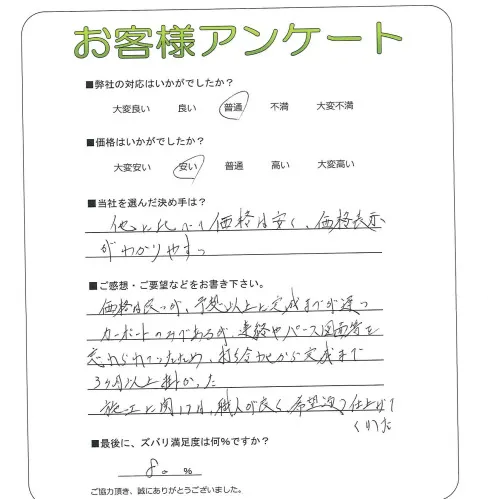 お客様アンケート
■弊社の対応はいかがでしたか?
大変良い 良い 普通 不満 大変不満
■価格はいかがでしたか?
大変安い 安い 普通 高い 大変高い
■当社を選んだ決め手は?
他に比べ価格は安く、価格表示
がわかりやすい
■ご感想・ご要望などをお書き下さい。
価格は良いが、予想以上に完成までが遅い
カーポートのみであるが、連絡やパース図面等を
忘れられていたため、打ち合わせから完成まで
3ヶ月以上掛かった
施工に関しては、職人が良く、希望通り仕上げて
くれた
■最後に、ズバリ満足度は何%ですか?
80 %
ご協力頂き、誠にありがとうございました。